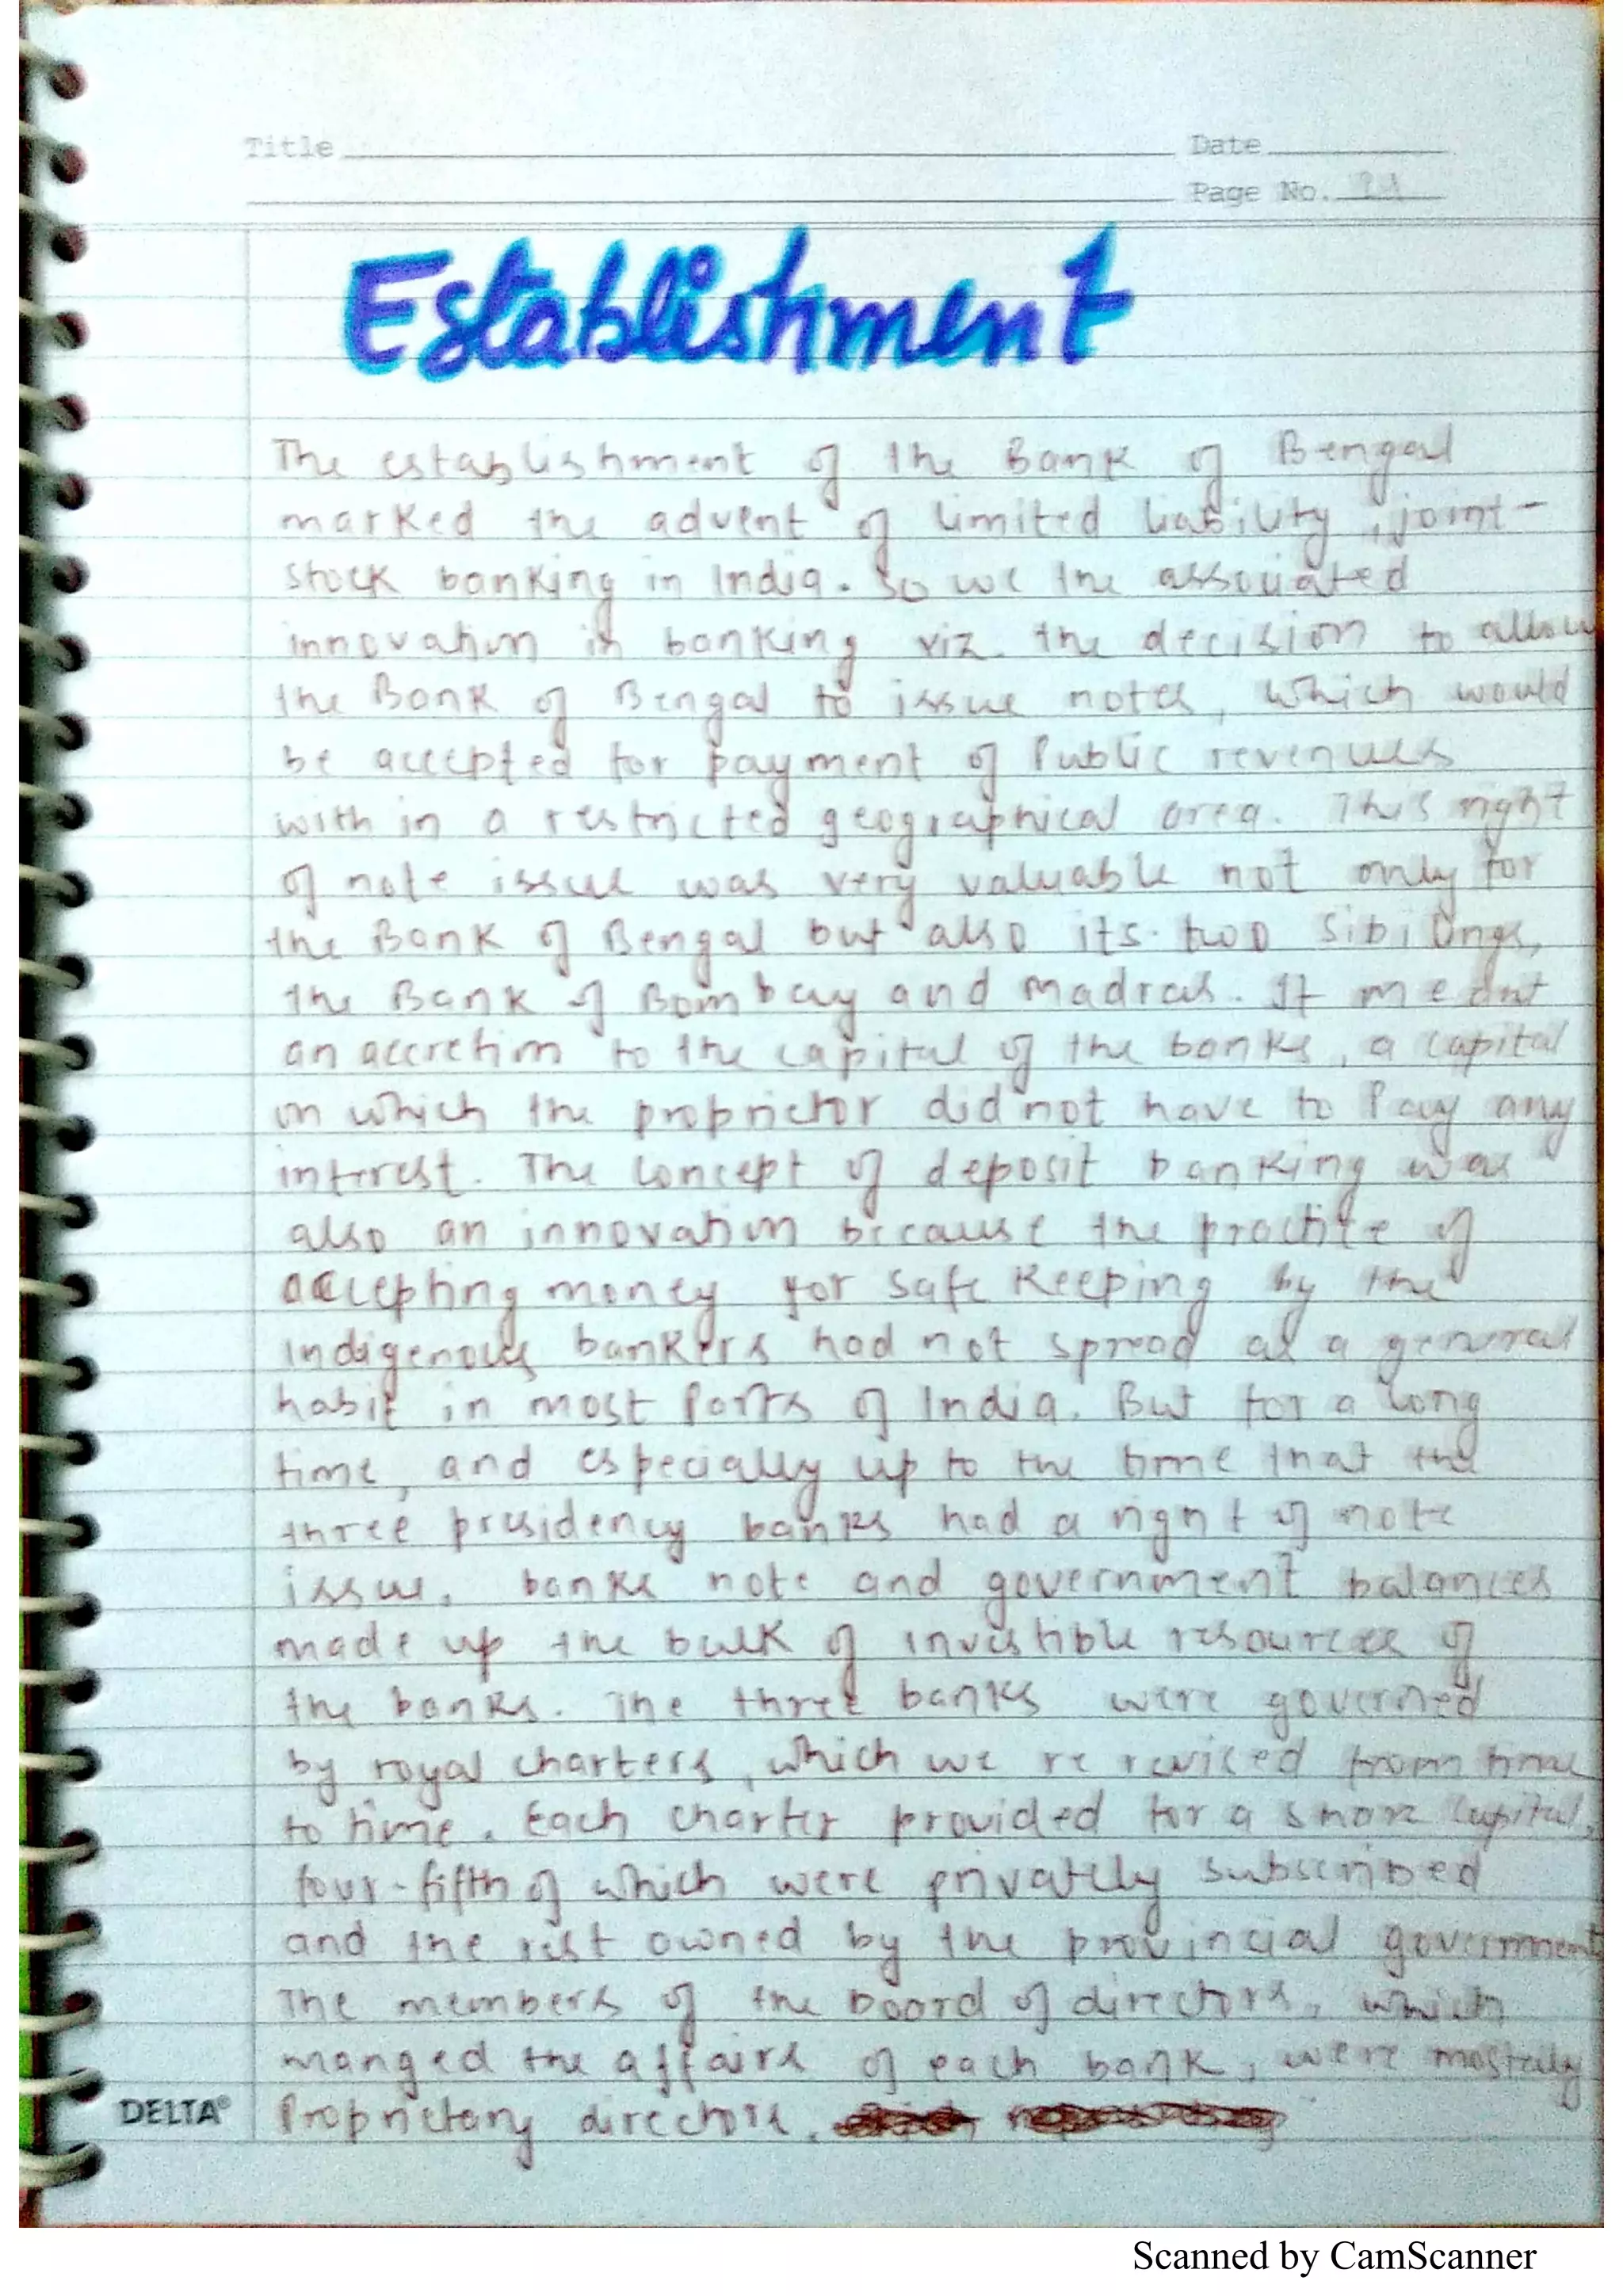 Title
Date
Page No.
Establishment
The establishment of the Bank of Bengal
marked the advent of limited liability, joint-
stock banking in India. So we the associated
innovation in banking viz. the decision to allow
the Bank of Bengal to issue notes, which would
be accepted for payment of Public revenues
with in a restricted geographical area. This right
of note issue was very valuable not only for
the Bank of Bengal but also its two Sibilings,
the Bank of Bombay and Madras. It meant
an accretion to the capital of the banks, a capital
on which the proprietor did not have to Pay any
interest. The concept of deposit banking was
also an innovation because the practite of
accepting money for safe Keeping by the
indigenous bankers had not spread as a general
habit in most Parts of India. But for a long
time, and especially up to the time that the
three presidency banks had a right of note
issue. banks note and government balances
made up the bulk of investible resources of
the banks. The three banks were governed
by royal charters, which we re reviced from time
to time. Each charter provided for a share capital,
four-fifth of which were privately subscribed
and the rest owned by the provincial government
The members of the board of directors, which
manged the affairs of each bank, were mostely
Proprietory directors.
DELTA®
Scanned by CamScanner